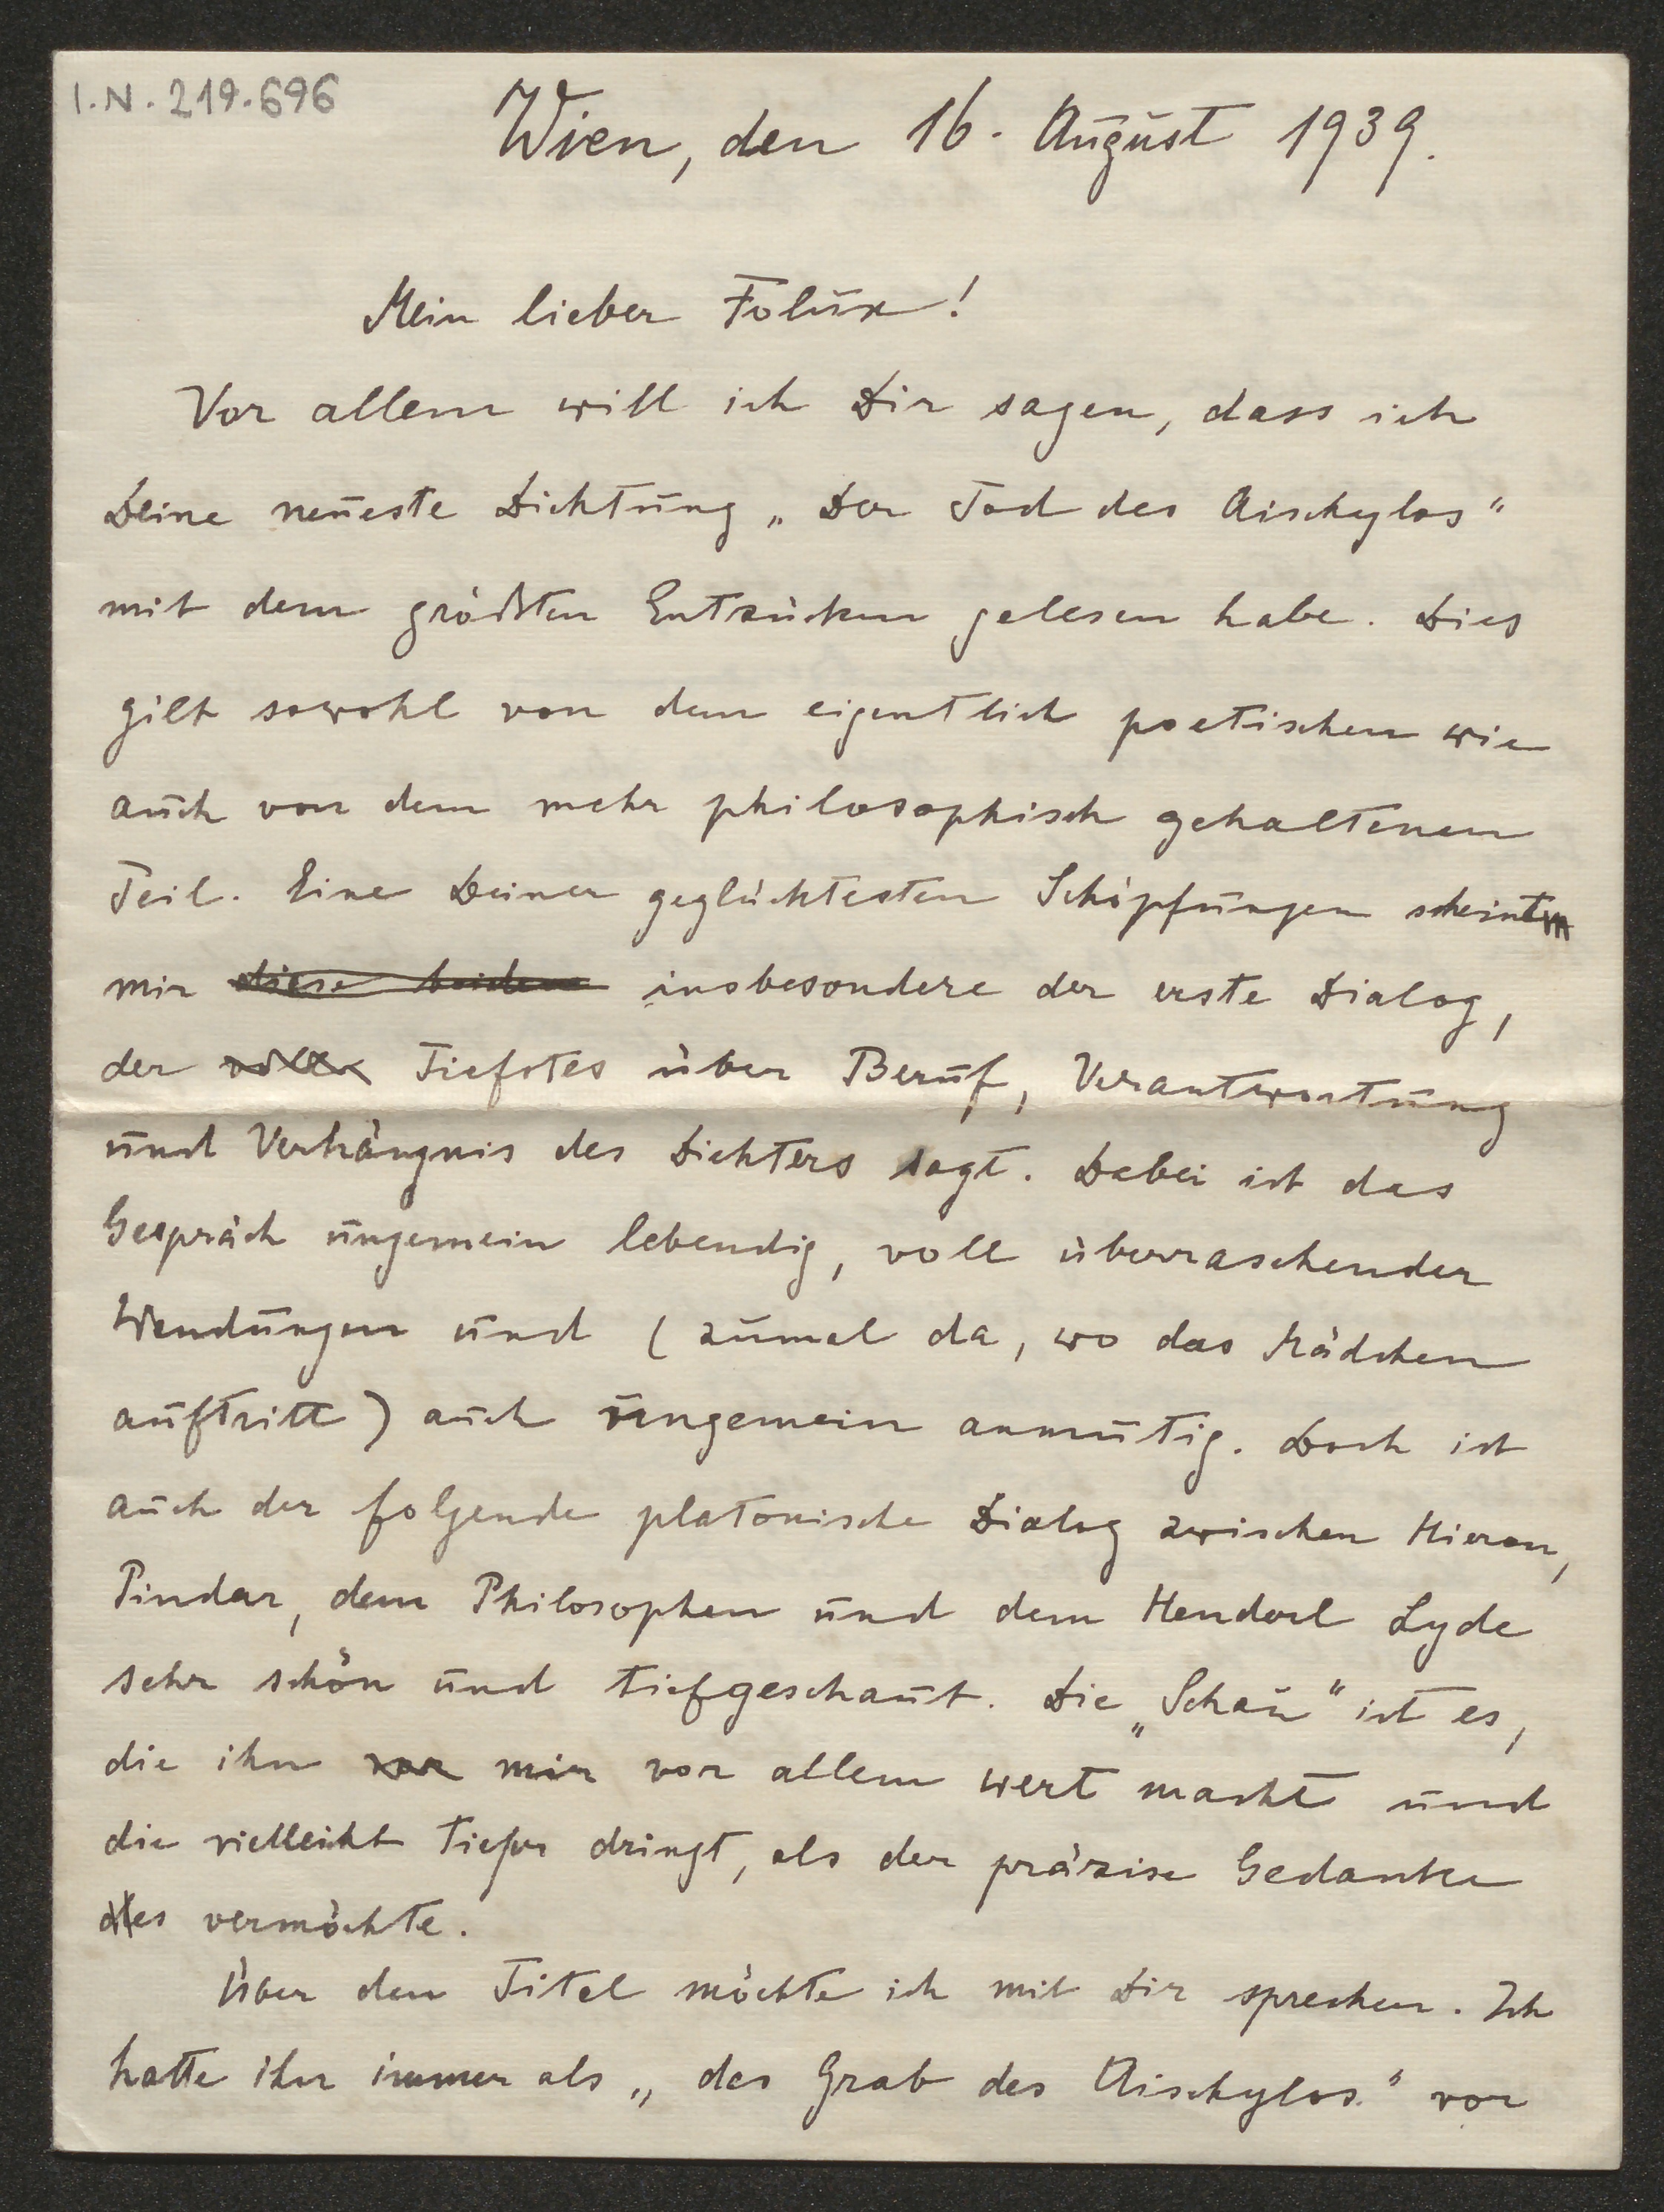 I.N. 219.696
Wien, den 16. August 1939.
Mein lieber Folux!
Vor allem will ich Dir sagen, dass ich
Deine neueste Dichtung „Der Tod des Aischylos"
mit dem größten Entzücken gelesen habe. Dies
gilt sowohl von dem eigentlich poetischen wie
auch von dem mehr philosophisch gehaltenen
Teil. Eine Deiner geglücktesten Schöpfungen scheint
mir diese beiden insbesondere der erste Dialog,
der Tiefstes über Beruf, Verantwortung
und Verhängnis des Dichters sagt. Dabei ist das
Gespräch ungemein lebendig, voll überraschender
Wendungen und (zumal da, wo das Mädchen
auftritt) auch ungemein anmutig. Doch ist
auch der folgende platonische Dialog zwischen Hieron,
Pindar, dem Philosophen und dem Lyde
sehr schön und tiefgeschaut. Die „Schau" ist es,
die ihn vor mir vor allem wert macht und
die vielleicht tiefer dringt, als der präzise Gedanke
es vermöchte.
Über den Titel möchte ich mit Dir sprechen. Ich
hatte ihn immer als „das Grab des Aischylos" vor